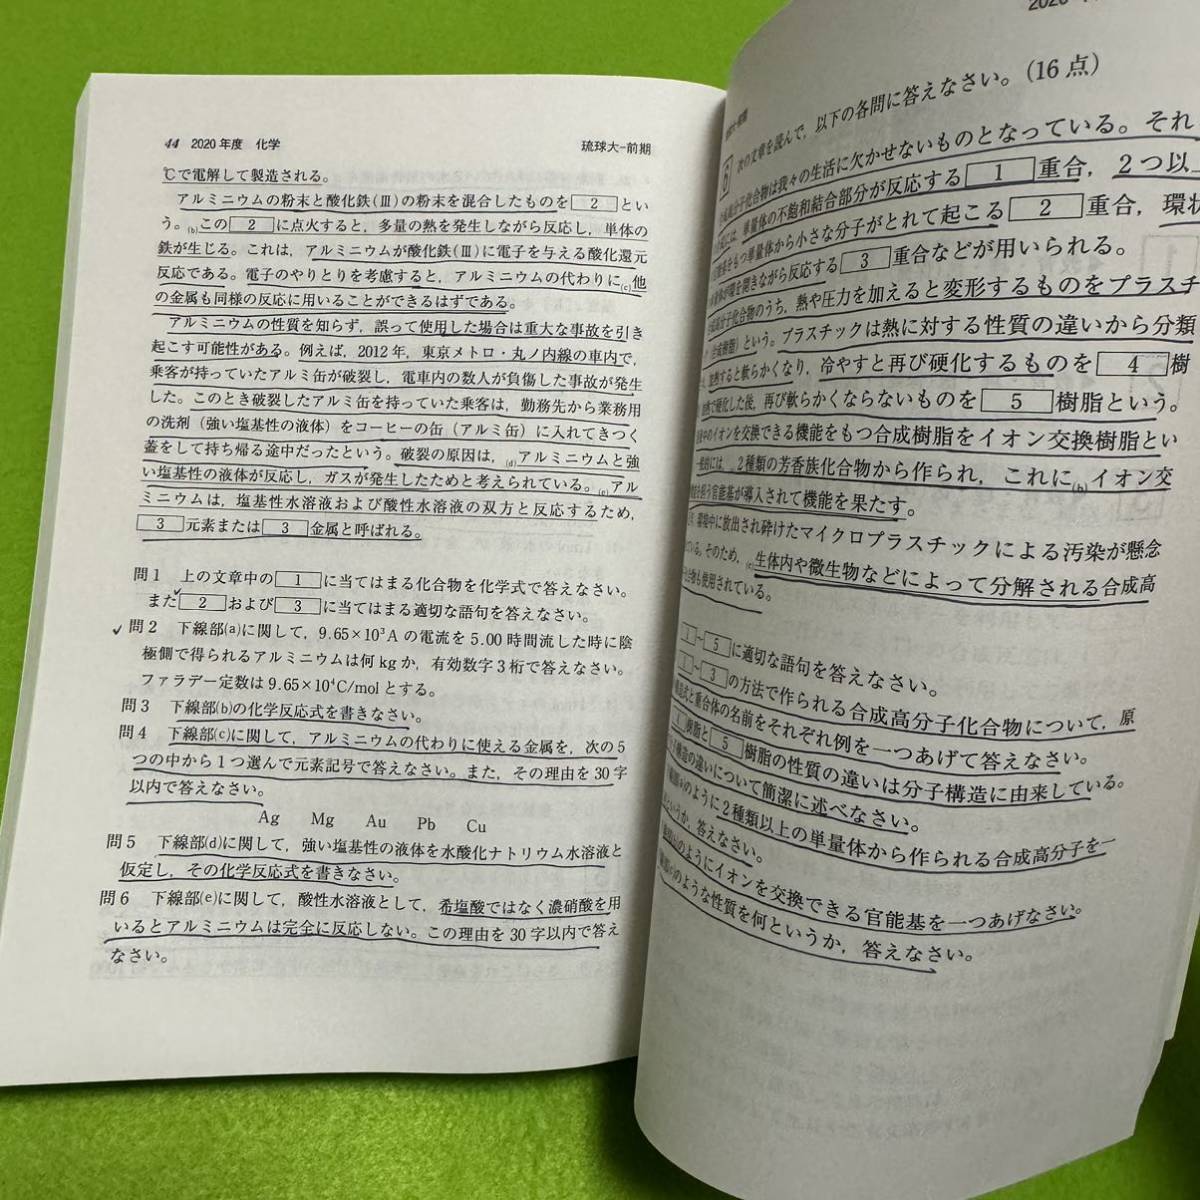 44 2020年度 化学
琉球大-前期
℃で電解して製造される。
アルミニウムの粉末と酸化鉄(Ⅲ)の粉末を混合したものを 2 とい
う。(b)この 2 に点火すると，多量の熱を発生しながら反応し，単体の
鉄が生じる。これは，アルミニウムが酸化鉄(Ⅲ)に電子を与える酸化還元
反応である。電子のやりとりを考慮すると，アルミニウムの代わりに(c)他
の金属も同様の反応に用いることができるはずである。
アルミニウムの性質を知らず，誤って使用した場合は重大な事故を引き
起こす可能性がある。例えば，2012年，東京メトロ・丸ノ内線の車内で，
乗客が持っていたアルミ缶が破裂し，電車内の数人が負傷した事故が発生
した。このとき破裂したアルミ缶を持っていた乗客は，勤務先から業務用
の洗剤（強い塩基性の液体）をコーヒーの缶（アルミ缶）に入れてきつく
蓋をして持ち帰る途中だったという。破裂の原因は，(d)アルミニウムと強
い塩基性の液体が反応し，ガスが発生したためと考えられている。(e)アル
ミニウムは，塩基性水溶液および酸性水溶液の双方と反応するため，
3 元素または 3 金属と呼ばれる。
問1 上の文章中の 1 に当てはまる化合物を化学式で答えなさい。
また 2 および 3 に当てはまる適切な語句を答えなさい。
問2 下線部(a)に関して，9.65×10³Aの電流を5.00時間流した時に陰
極側で得られるアルミニウムは何kgか，有効数字3桁で答えなさい。
ファラデー定数は9.65×10⁴C/molとする。
問3 下線部(b)の化学反応式を書きなさい。
問4 下線部(c)に関して，アルミニウムの代わりに使える金属を，次の5
つの中から1つ選んで元素記号で答えなさい。また，その理由を30字
以内で答えなさい。
Ag Mg Au Pb Cu
問5 下線部(d)に関して，強い塩基性の液体を水酸化ナトリウム水溶液と
仮定し，その化学反応式を書きなさい。
問6 下線部(e)に関して，酸性水溶液として，希塩酸ではなく濃硝酸を用
いるとアルミニウムは完全に反応しない。この理由を30字以内で答え
なさい。
6 次の文章を読んで，以下の各問に答えなさい。(16点)
合成高分子化合物は我々の生活に欠かせないものとなっている。それ
には，単量体の不飽和結合部分が反応する 1 重合，2つ以上
をもつ単量体から小さな分子がとれて起こる 2 重合，環状
が環を開きながら反応する 3 重合などが用いられる。
合成高分子化合物のうち，熱や圧力を加えると変形するものをプラスチ
(合成樹脂)という。プラスチックは熱に対する性質の違いから分類
，加熱すると軟らかくなり，冷やすと再び硬化するものを 4 樹
，加熱で硬化した後，再び軟らかくならないものを 5 樹脂という。
中のイオンを交換できる機能をもつ合成樹脂をイオン交換樹脂とい
一般的には，2種類の芳香族化合物から作られ，これに(b)イオン交
を担う官能基が導入されて機能を果たす。
環境中に放出され砕けたマイクロプラスチックによる汚染が懸念
ている。そのため，(c)生体内や微生物などによって分解される合成高
化合物も使用されている。
1～5に適切な語句を答えなさい。
1～3の方法で作られる合成高分子化合物について，原
式と重合体の名前をそれぞれ例を一つあげて答えなさい。
樹脂と 5 樹脂の性質の違いは分子構造に由来している。
構造の違いについて簡潔に述べなさい。
のように2種類以上の単量体から作られる合成高分子を一
というか，答えなさい。
のようにイオンを交換できる官能基を一つあげなさい。
のような性質を何というか，答えなさい。